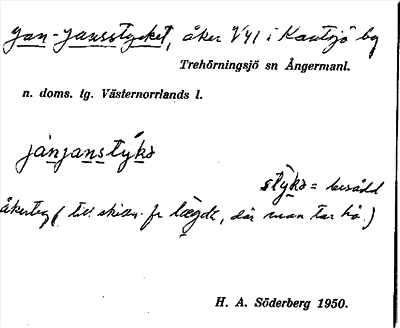 Jan-Jansstycket, åker V41 i Kantsjö by
Trehörningsjö sn Ångermanl.
n. doms. tg. Västernorrlands l.
jánjanstýkə
stýkə = besådd
åkerteg (till skilln. fr lægde, där man tar hö.)
H. A. Söderberg 1950.